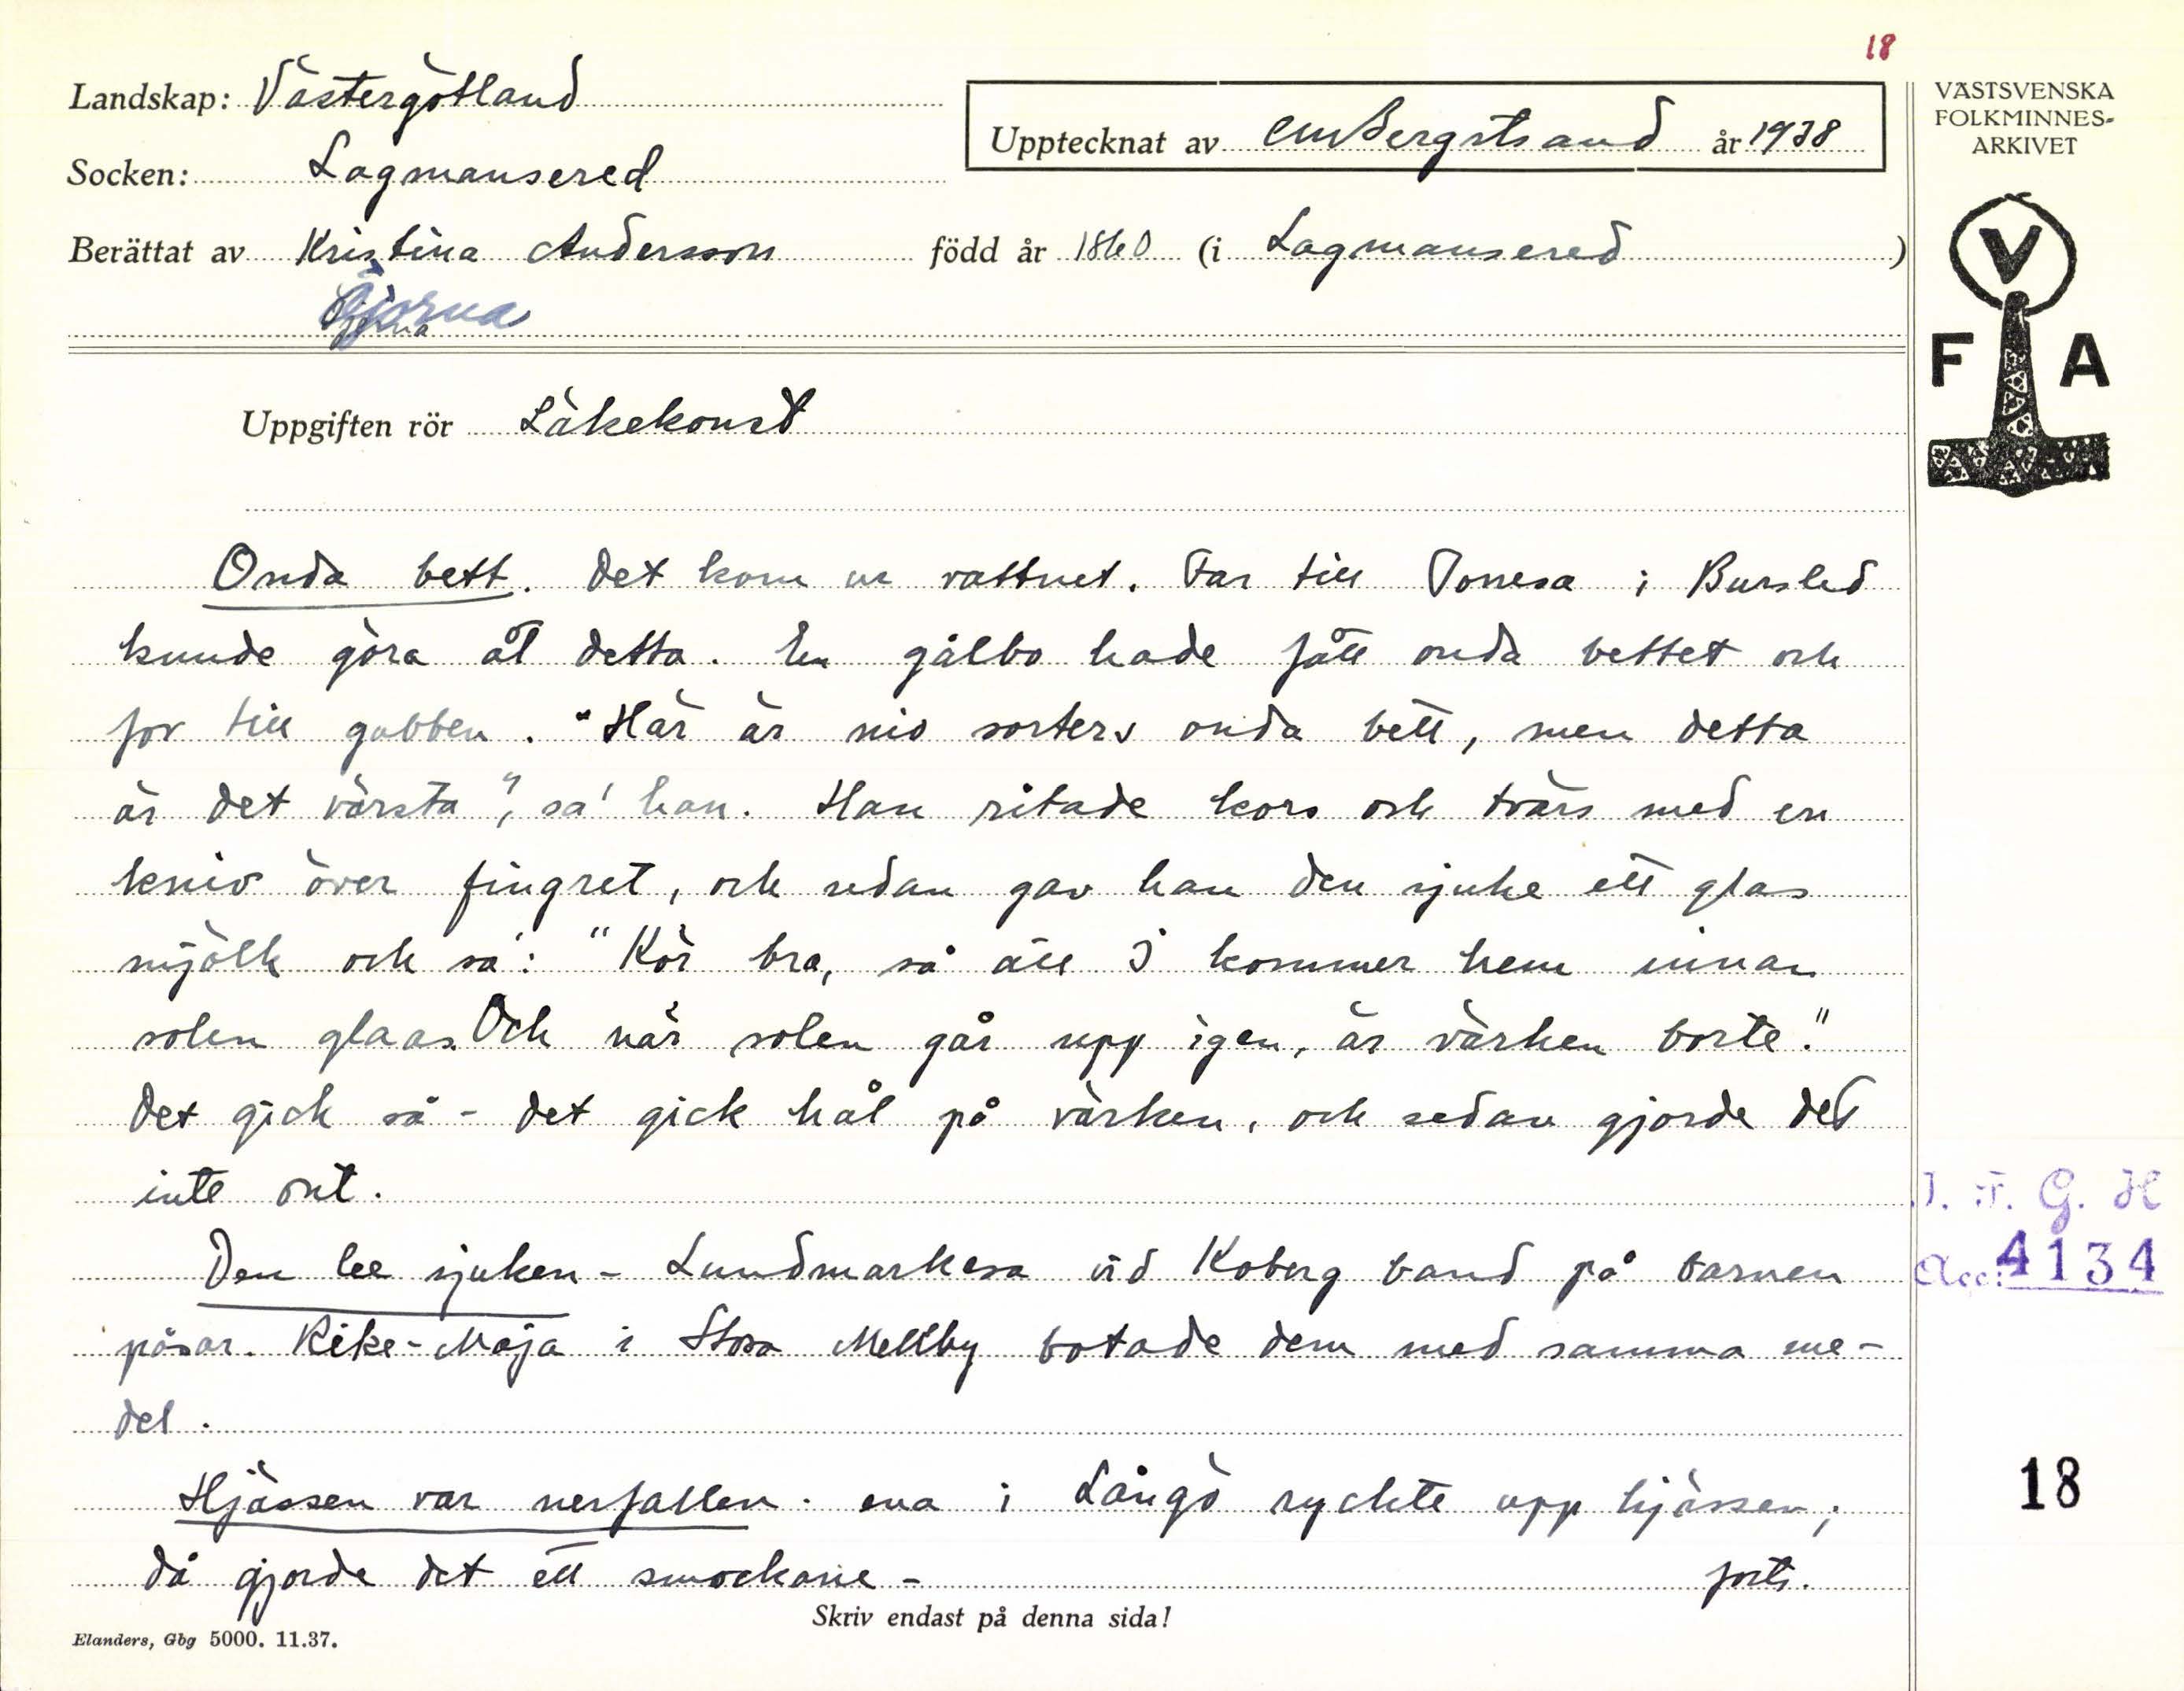 18
Landskap: Västergötland
Upptecknat av CMBergstrand år 1938
VÄSTSVENSKA
FOLKMINNES-
ARKIVET
Socken: Lagmansered
Berättat av Kristina Andersson född år 1860 (i Lagmansered)
V
F A
Uppgiften rör Läkekonst
Onda bett. Det kom ur vattnet. Far till Jonesa i Bursled
kunde göra åt detta. En gålbo hade fått onda bettet och
for till gubben. "Här är nio sorters onda bett, men detta
är det värsta", sa' han. Han ritade kors och tvärs med en
kniv över fingret, och sedan gav han den sjuke ett glas
mjölk och sa': "Kör bra, så att I kommer hem innan
solen glaas. Och när solen går upp igen, är värken borte."
Det gick så - det gick hål på värken, och sedan gjorde det
inte ont.
Den lee sjuken - Lundmarkesa vid Koberg band på barnen
påsar. Rike-Maja i Stora Mellby botade dem med samma me-
del.
Hjässen var nerfallen. ena i Långö ryckte upp hjässen;
då gjorde det ett smockane -
forts.
Skriv endast på denna sida!
Elanders, Gbg 5000. 11.37.
I. F. G. H
Acc: 4134
18